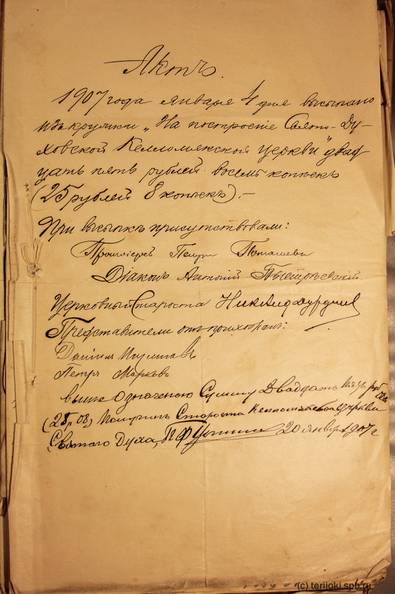 Актъ.
1907 года января 4 дня высыпано
изъ кружки „На построеніе Свято-Ду-
ховской Келломякской церкви" двад-
цать пять рублей восемь копѣекъ
(25 рублей 8 копѣекъ).-
При высыпкѣ присутствовали:
Протоіерей Петръ Поташевъ
Діаконъ Антоній
Церковный староста
Представители отъ прихожанъ:
Петръ Марковъ
выше означеную сумму двадцать пять руб
(25, 08) получилъ Староста церкви
Святого Духа, 20 января 1907 г
(c) terijoki.spb.ru